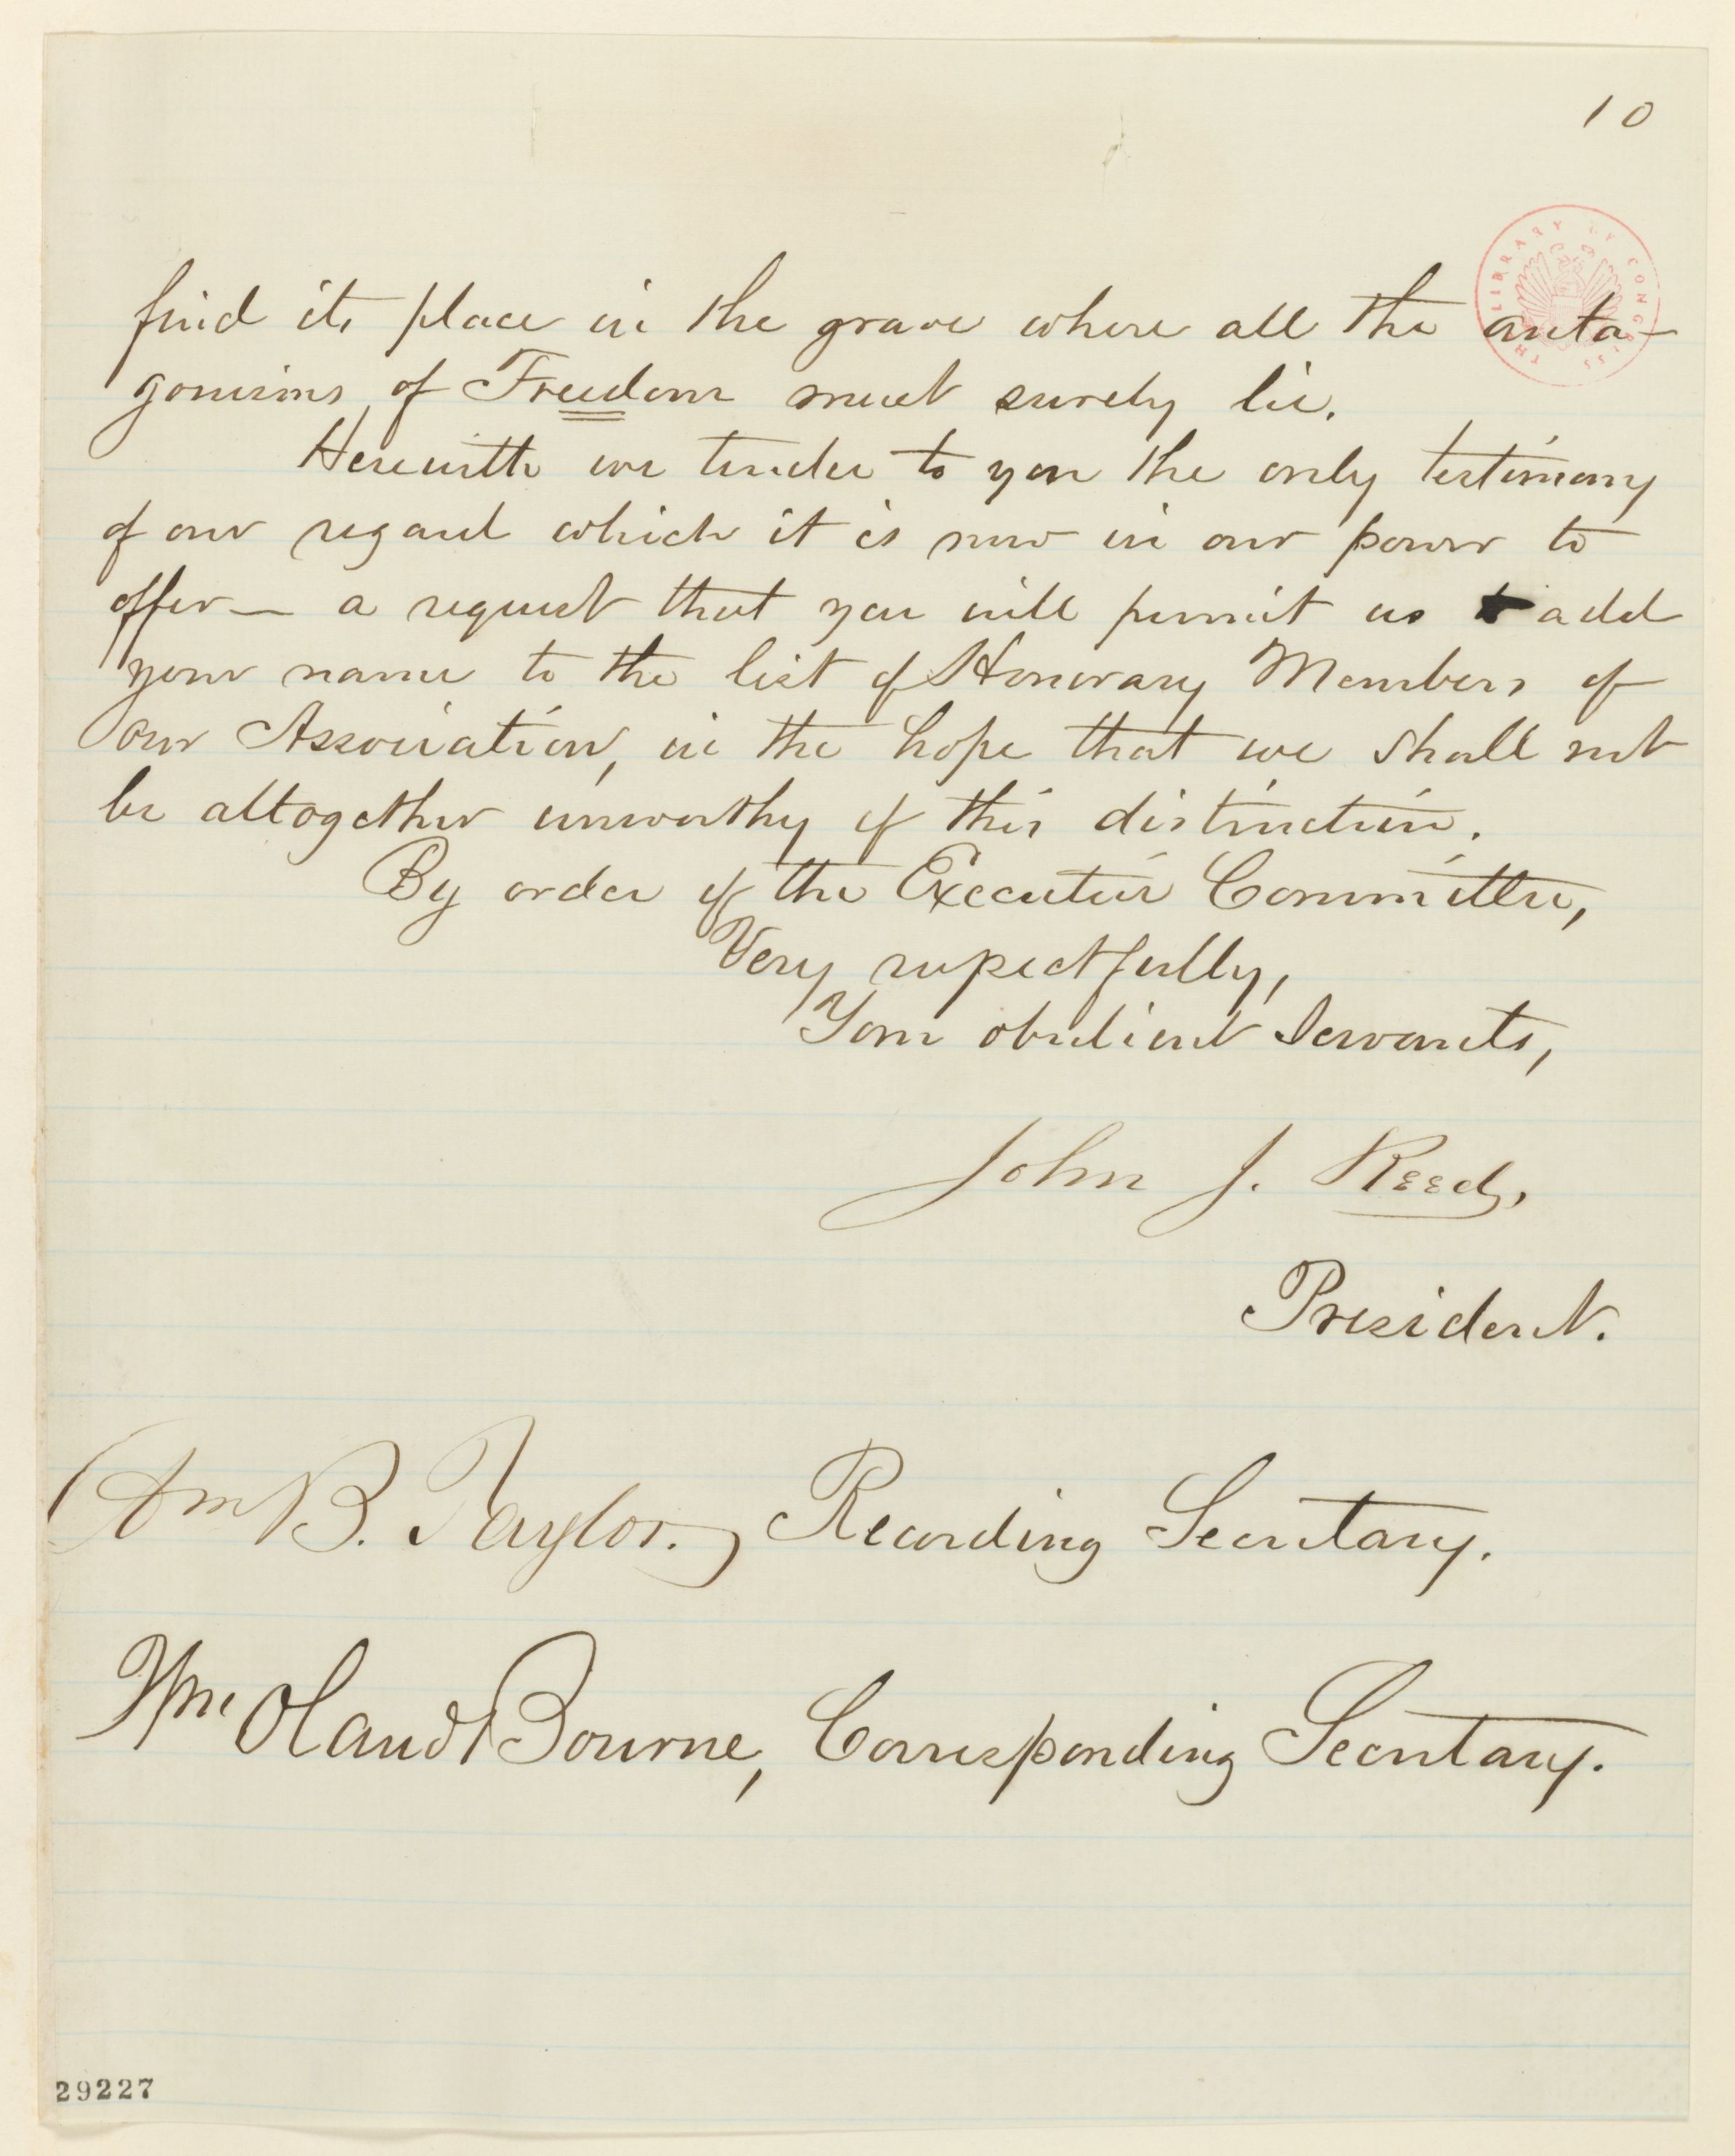 10
THE LIBRARY OF CONGRESS
find its place in the grave where all the anta-
gonisms of Freedom must surely lie.
Herewith we tender to you the only testimony
of our regard which it is now in our power to
offer— a request that you will permit us to add
your name to the list of Honorary Members of
our Association, in the hope that we shall not
be altogether unworthy of this distinction.
By order of the Executive Committee,
Very respectfully,
Your obedient Servants,
John J. Reed,
President.
Wm B. Taylor. Recording Secretary.
Wm Oland Bourne, Corresponding Secretary.
29227